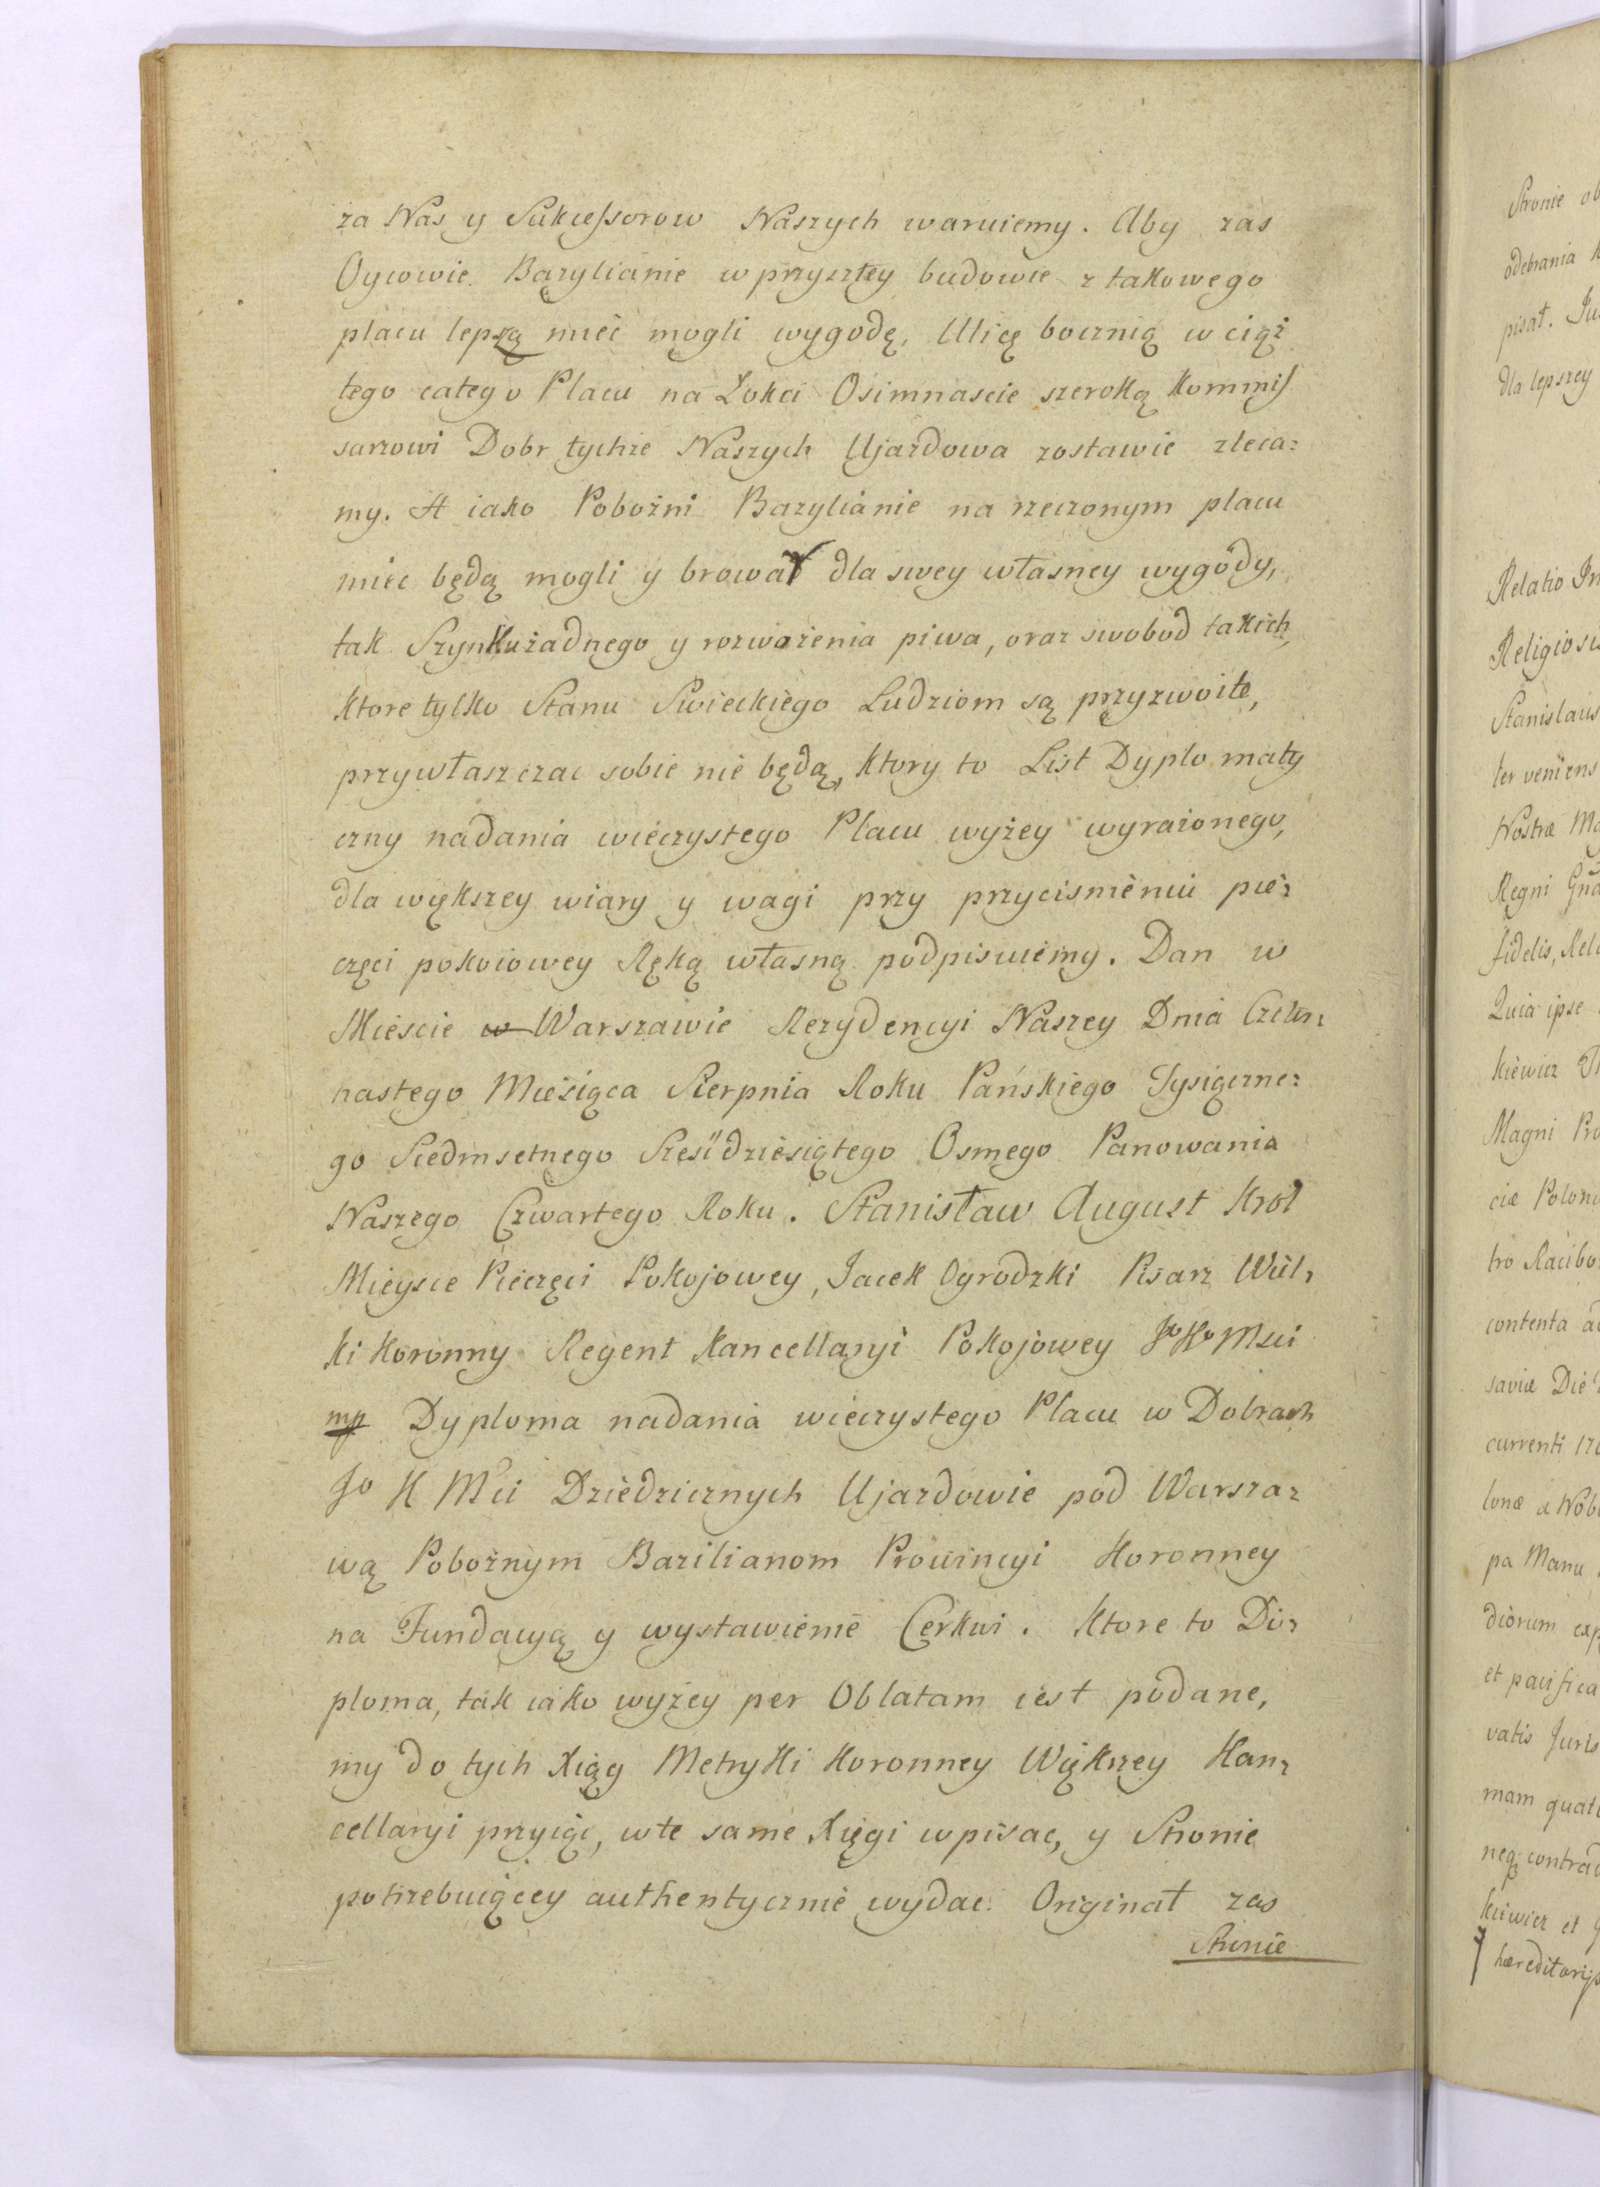 za Nas y Sukcessorow Naszych waruiemy. Aby zas
Oycowie Bazylianie w przyszłey budowie z takowego
placu lepszą mieć mogli wygodę, Ulicę bocznią w ciąż
tego całego Placu na Łokci Osimnascie szeroką Kommis
sarzowi Dobr tychże Naszych Ujazdowa zostawic zleca:
my. A iako Pobożni Bazylianie na rzeczonym placu
miec będą mogli y browar dla swey własney wygody,
tak Szynku żadnego y rozwożenia piwa, oraz swobod takich,
ktore tylko Stanu Swieckiego Ludziom są przyzwoite,
przywłaszczac sobie nie będą, ktory to List Dyplo maty
czny nadania wieczystego Placu wyżey wyrażonego,
dla większey wiary y wagi przy przycisnieniu pie:
częci pokoiowey Ręką własną podpisuiemy. Dan w
Miescie w Warszawie Rezydencyi Naszey Dnia Czter:
nastego Miesiąca Sierpnia Roku Pańskiego Tysiączne:
go Siedmsetnego Sześćdziesiątego Osmego Panowania
Naszego Czwartego Roku. Stanisław August Krol
Mieysce Pieczęci Pokojowey, Jacek Ogrodzki Pisarz Wiel:
ki Koronny Regent Kancellaryi Pokojowey Jo Ko Msci
mp Dyploma nadania wieczystego Placu w Dobrach
Jo K Mci Dziedzicznych Ujazdowie pod Warsza:
wą Pobożnym Bazilianom Prowincyi Koronney
na Fundacyą y wystawienie Cerkwi. Ktore to Di:
ploma, tak iako wyżey per Oblatam iest podane,
my do tych Xiąg Metryki Koronney Większey Kan:
cellaryi przyiąc, w te same Xięgi wpisac, y Stronie
potrzebuiącey authentycznie wydac. Originał zas
Stronie
Stronie ob
odebrania
pisał.
dla lepszey
Relatio
Stanislaus
ter veniens
Nostræ
Regni
fidelis,
Quia ipse
kiewicz
Magni
ciæ
tro
contenta
saviæ Die
currenti
lonæ a
pa Manu
diorum
et pacifica
vatis Juris
mam
neq; contrad
kiewicz et
hæreditarijs